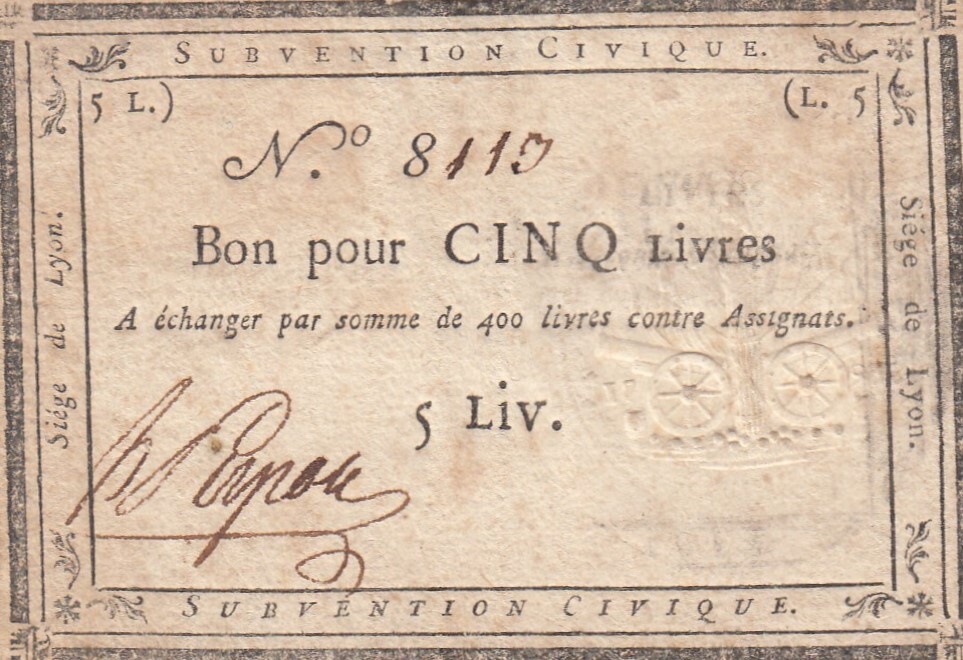 SUBVENTION CIVIQUE.
5 L.)
(L. 5
N.º 8113
Bon pour CINQ Livres
A échanger par somme de 400 livres contre Assignats.
5 LIV.
Siége de Lyon.
Siége de Lyon.
SUBVENTION CIVIQUE.